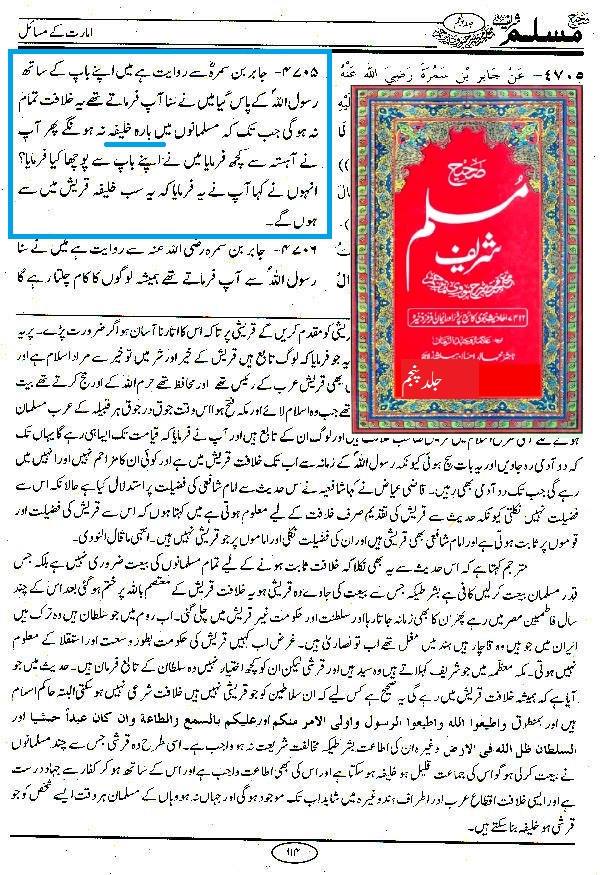 صحیح مسلم شریف
امارت کے مسائل
٤٧٠٥- عَنْ جَابِرِ بْنِ سَمُرَةَ رَضِيَ اللهُ عَنْهُ
۴۷۰۵- جابر بن سمرہؓ سے روایت ہے میں اپنے باپ کے ساتھ
رسول اللہؐ کے پاس گیا میں نے سنا آپ فرماتے تھے یہ خلافت تمام
نہ ہوگی جب تک کہ مسلمانوں میں بارہ خلیفہ نہ ہونگے پھر آپ
نے آہستہ سے کچھ فرمایا میں نے اپنے باپ سے پوچھا کیا فرمایا؟
انہوں نے کہا آپ نے یہ فرمایا کہ یہ سب خلیفہ قریش میں سے
ہوں گے۔
۴۷۰۶- جابر بن سمرہ رضی اللہ عنہ سے روایت ہے میں نے سنا
رسول اللہؐ سے آپ فرماتے تھے ہمیشہ لوگوں کا کام چلتا رہے گا
صحیح
مسلم
شریف
جلد پنجم
قریشی کو مقدم کریں گے قریشی پر تاکہ اس کا اتارنا آسان ہو اگر ضرورت پڑے۔ پر یہ
یہ جو فرمایا کہ لوگ تابع ہیں قریش کے خیر اور شر میں تو خیر سے مراد اسلام ہے اور
تھی قریش عرب کے رئیس تھے اور محافظ تھے حرم اللہ کے اور حج کرتے تھے بیت
تھے جب وہ اسلام لائے اور مکہ فتح ہوا اس وقت جوق در جوق ہر قبیلہ کے عرب مسلمان
اور لوگ ان کے تابع ہیں اور آپ نے فرمایا کہ قیامت تک ایسا ہی رہے گا یہاں تک
کہ دو آدمی رہ جاویں اور یہ بات سچ ہوئی کیونکہ رسول اللہؐ کے زمانہ سے اب تک خلافت قریش میں ہے اور کوئی ان کا مزاحم نہیں اور انہیں میں
رہے گی جب تک دو آدمی بھی رہیں۔ قاضی عیاض نے کہا شافعیہ نے اس حدیث سے امام شافعی کی فضیلت پر استدلال کیا ہے حالانکہ اس سے
فضیلت نہیں نکلتی کیونکہ حدیث سے قریش کی تقدیم صرف خلافت کے لیے معلوم ہوتی ہے میں کہتا ہوں کہ اس سے قریش کی فضیلت اور
قوموں پر ثابت ہوتی ہے اور امام شافعی بھی قریشی ہیں اور ان کی فضیلت نکلی اور اماموں پر جو قریشی نہیں ہیں۔ انتہی ما قال النووی۔
مترجم کہتا ہے کہ اس حدیث سے یہ بھی نکلا کہ خلافت ثابت ہونے کے لیے تمام مسلمانوں کی بیعت ضروری نہیں ہے بلکہ جس
قدر مسلمان بیعت کر لیں کافی ہے بشرطیکہ جس سے بیعت کی جاوے وہ قریشی ہو یہ خلافت قریش کے معتصم باللہ پر ختم ہو گئی بعد اس کے چند
سال فاطمیین مصر میں رہے پھر ان کا بھی زمانہ جاتا رہا اور سلطنت اور حکومت غیر قریش میں چلی گئی۔ اب روم میں جو سلطان ہیں وہ ترک ہیں
ایران میں جو ہیں وہ قاچار ہیں ہند میں مغل تھے اب تو نصاریٰ ہیں۔ غرض اب کہیں قریش کی حکومت بطور وسعت اور استقلا کے معلوم
نہیں ہوتی۔ مکہ معظمہ میں جو شریف کہلاتے ہیں وہ سید ہیں اور قرشی لیکن ان کو کچھ اختیار نہیں وہ سلطان کے تابع فرمان ہیں۔ حدیث میں جو
آیا ہے کہ ہمیشہ خلافت قریش میں رہے گی یہ صحیح ہے کس لیے کہ ان سلاطین کو جو قریشی نہیں ہیں خلافت شرعی نہیں ہو سکتی البتہ حاکم اسلام
ہیں اور بمنطوق واطیعوا اللہ واطیعوا الرسول واولی الامر منکم اور علیکم بالسمع والطاعة وان کان عبداً حبشیا اور
السلطان ظل اللہ فی الارض وغیرہ ان کی اطاعت بشرطیکہ مخالفت شریعت نہ ہو واجب ہے۔ اسی طرح وہ قرشی جس سے چند مسلمانوں
نے بیعت کر لی ہو گو اس کی جماعت قلیل ہو خلیفہ ہو سکتا ہے اور اس کی بھی اطاعت واجب ہے اور اس کے ساتھ ہو کر کفار سے جہاد درست
ہے اور ایسی خلافت اقطاع عرب اور اطراف ہند وغیرہ میں شاید اب تک موجود ہوگی اور جہاں نہ ہو وہاں کے مسلمان ہر وقت ایسے شخص کو جو
قرشی ہو خلیفہ بنا سکتے ہیں۔
۱۱۴